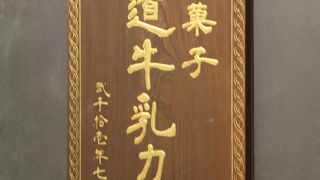 菓子
道牛乳力
弐千拾壱年七